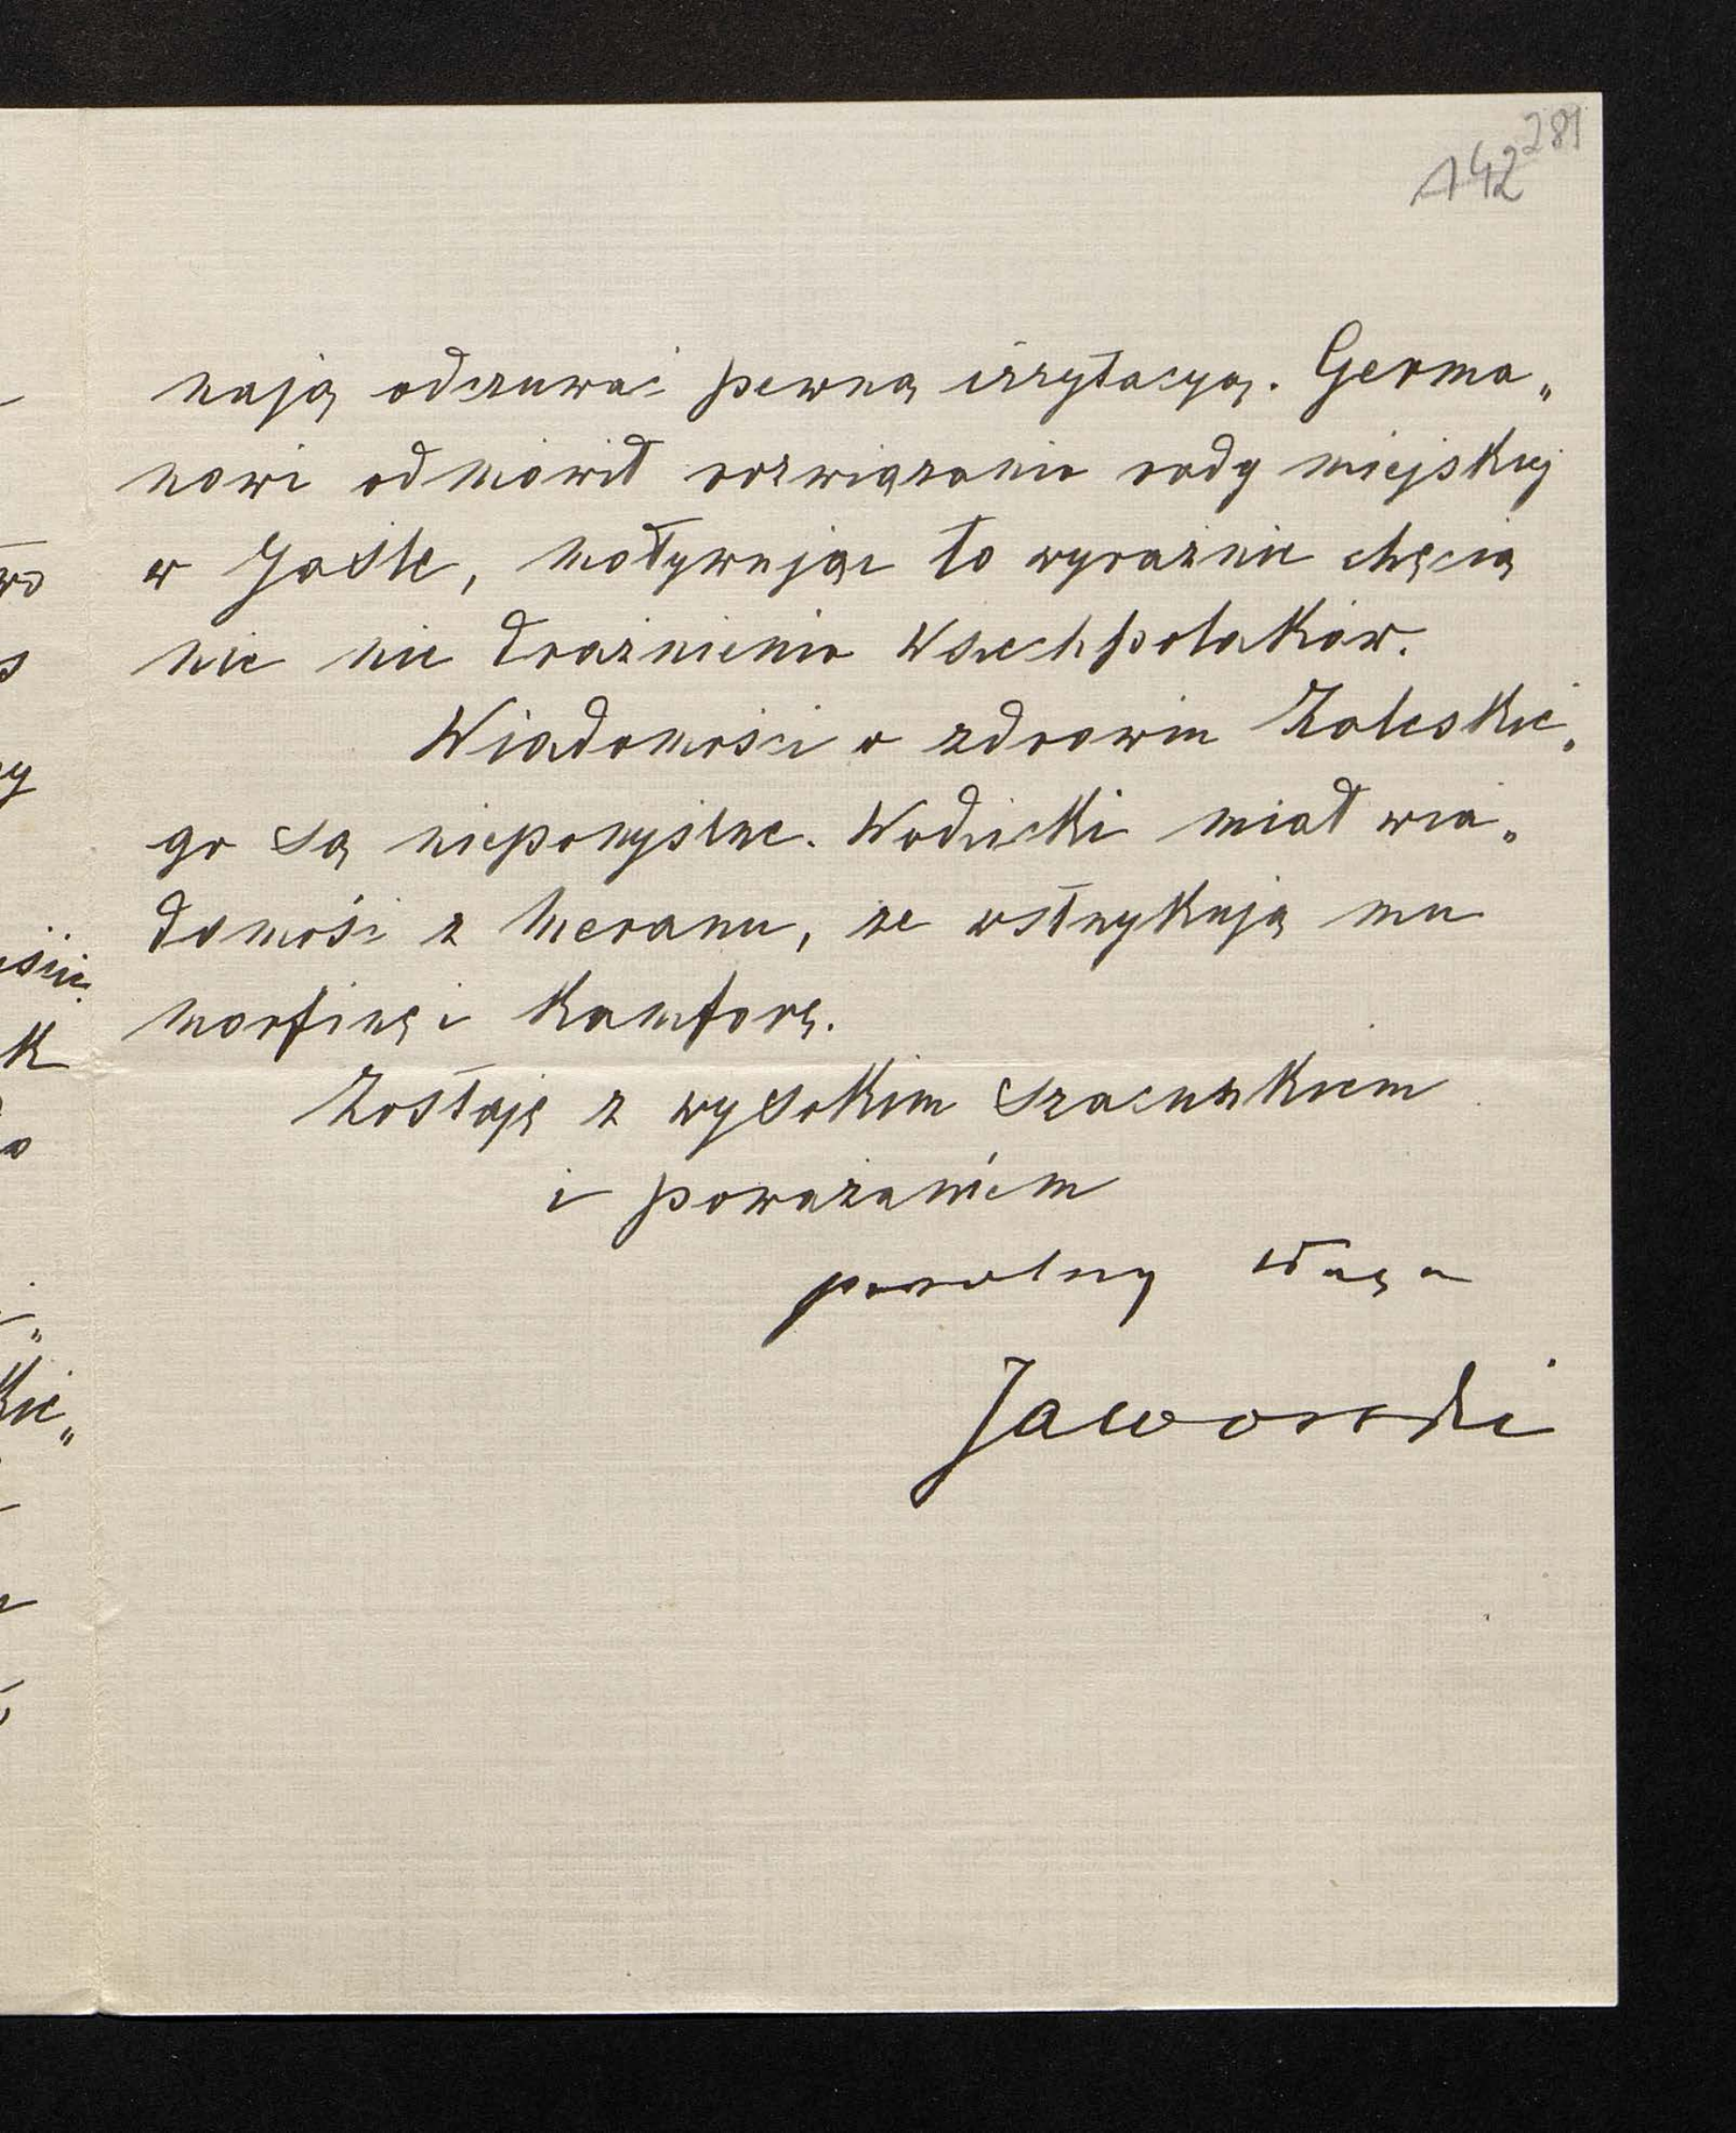 142 281
nają odczuwać pewną irrytacyą. Germa„
nowi odmówił rozwiązania rady miejskiej
w Jaśle, motywując to wyraźnie chęcią
nie nie drażnienia Wszechpolaków.
Wiadomości o zdrowiu Zaleskie„
go są niepomyślne. Wodzicki miał wia„
domość z Meranu, że wstrzykują mu
morfinę i kamforę.
Zostaję z wysokim szacunkiem
i poważaniem
powolny sługa
Jaworski